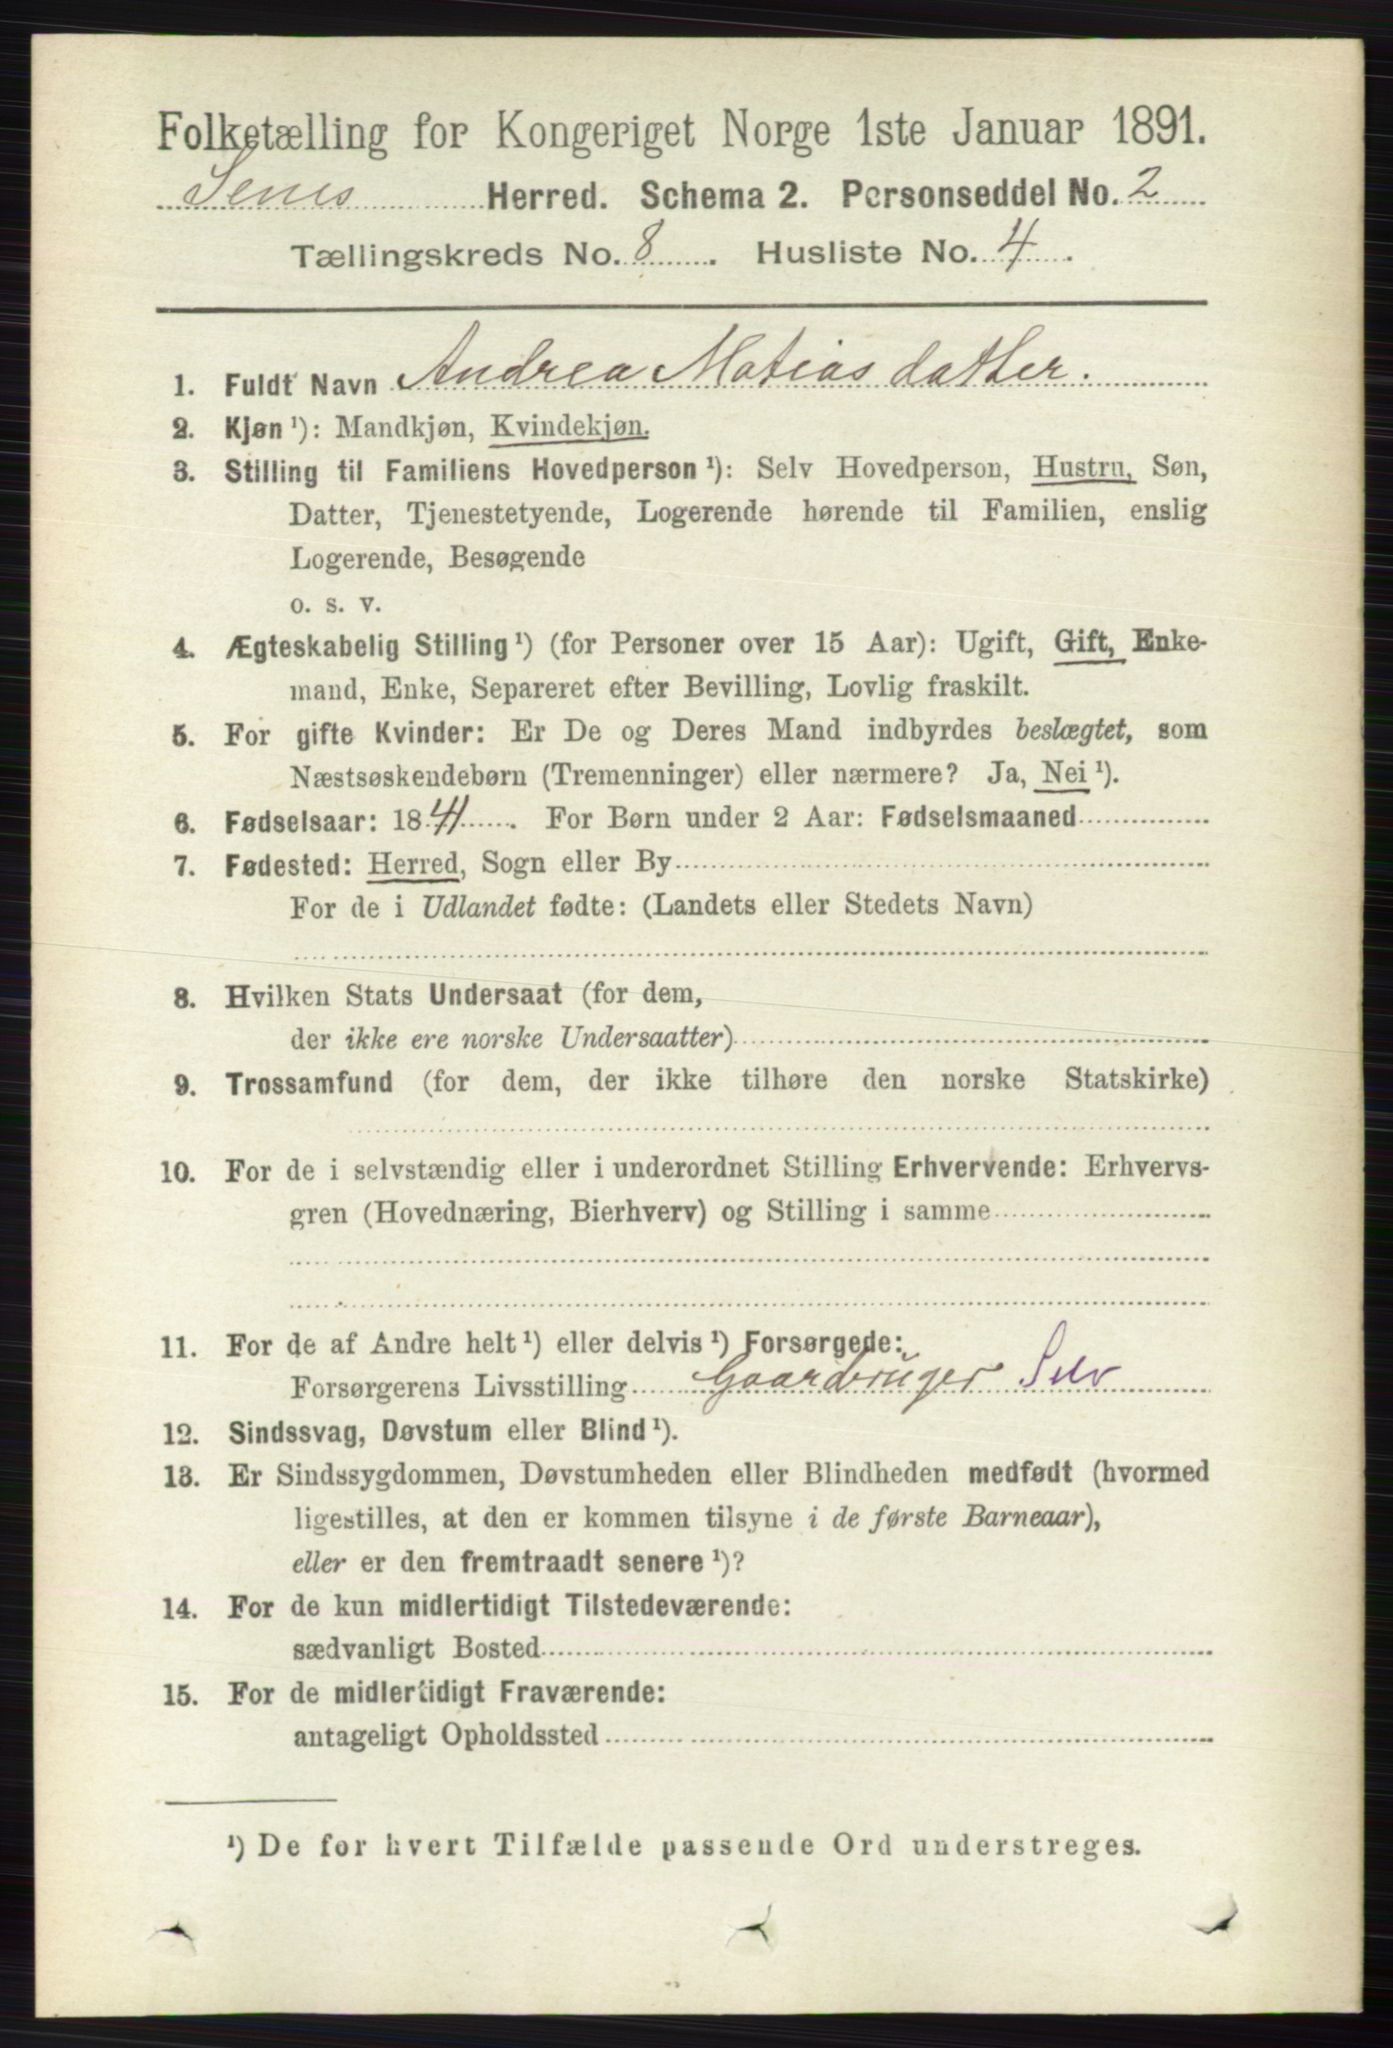 Folketælling for Kongeriget Norge 1ste Januar 1891.
Herred. Schema 2. Personseddel No. 2
Tællingskreds No. 8. Husliste No. 4.
1. Fuldt Navn Andrea Matias datter.
2. Kjøn ¹): Mandkjøn, Kvindekjøn.
3. Stilling til Familiens Hovedperson ¹): Selv Hovedperson, Hustru, Søn,
Datter, Tjenestetyende, Logerende hørende til Familien, enslig
Logerende, Besøgende
o. s. v.
4. Ægteskabelig Stilling ¹) (for Personer over 15 Aar): Ugift, Gift, Enke-
mand, Enke, Separeret efter Bevilling, Lovlig fraskilt.
5. For gifte Kvinder: Er De og Deres Mand indbyrdes beslægtet, som
Næstsøskendebørn (Tremenninger) eller nærmere? Ja, Nei ¹).
6. Fødselsaar: 1841. For Børn under 2 Aar: Fødselsmaaned
7. Fødested: Herred, Sogn eller By
For de i Udlandet fødte: (Landets eller Stedets Navn)
8. Hvilken Stats Undersaat (for dem,
der ikke ere norske Undersaatter)
9. Trossamfund (for dem, der ikke tilhøre den norske Statskirke)
10. For de i selvstændig eller i underordnet Stilling Erhvervende: Erhvervs-
gren (Hovednæring, Bierhverv) og Stilling i samme
11. For de af Andre helt ¹) eller delvis ¹) Forsørgede:
Forsørgerens Livsstilling Gaardbruger Selv
12. Sindssvag, Døvstum eller Blind ¹).
13. Er Sindssygdommen, Døvstumheden eller Blindheden medfødt (hvormed
ligestilles, at den er kommen tilsyne i de første Barneaar),
eller er den fremtraadt senere ¹)?
14. For de kun midlertidigt Tilstedeværende:
sædvanligt Bosted
15. For de midlertidigt Fraværende:
antageligt Opholdssted
¹) De for hvert Tilfælde passende Ord understreges.